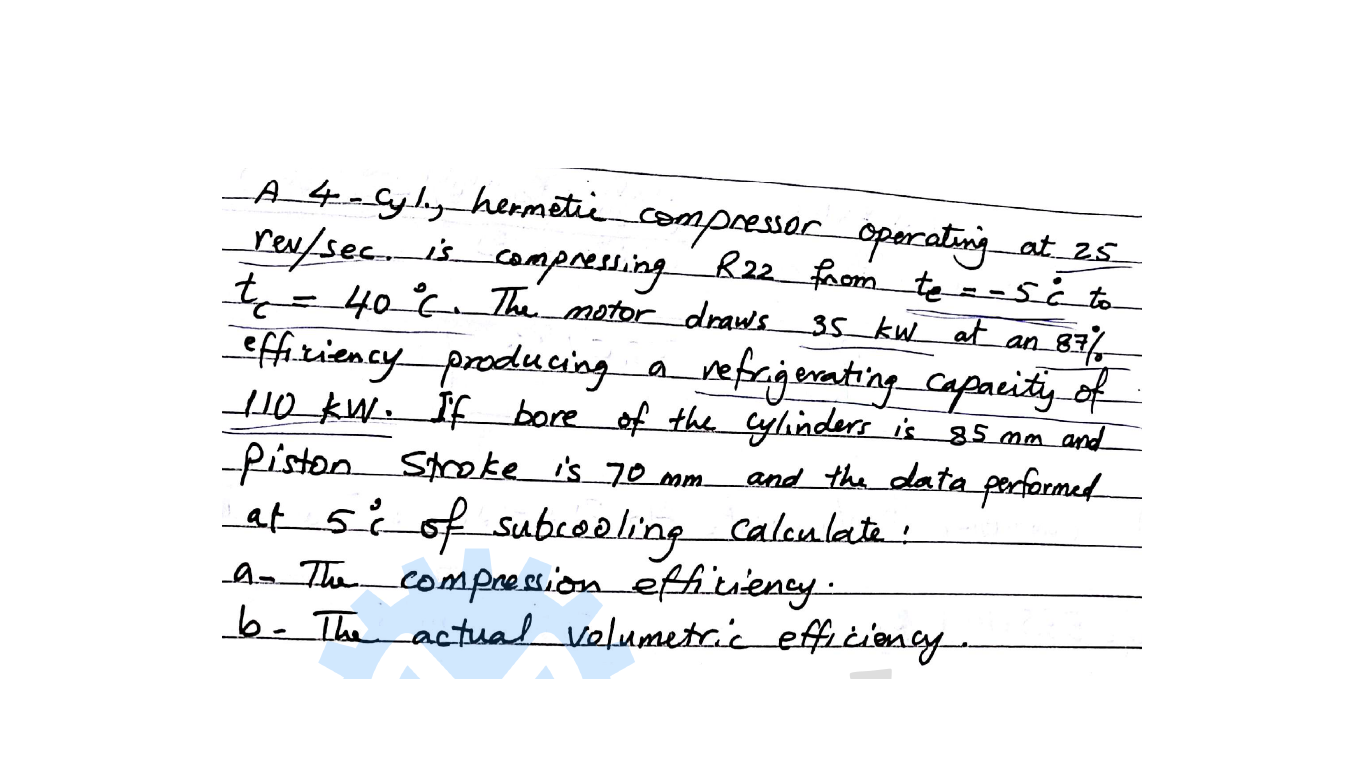 A 4-cyl., hermetic compressor operating at 25
rev/sec. is compressing R22 from te = -5°c to
tc = 40 °C. The motor draws 35 kW at an 87%
efficiency producing a refrigerating capacity of
110 kW. If bore of the cylinders is 85 mm and
piston stroke is 70 mm and the data performed
at 5°c of subcooling calculate:
a- The compression efficiency.
b- The actual volumetric efficiency.